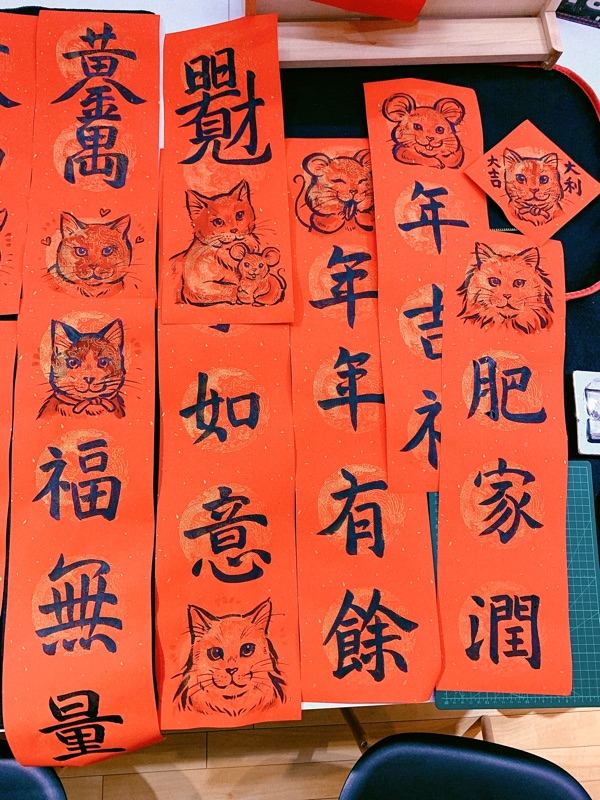 黃金萬
日日見財
福無量
如意
年年有餘
年吉
大吉
大利
肥家潤